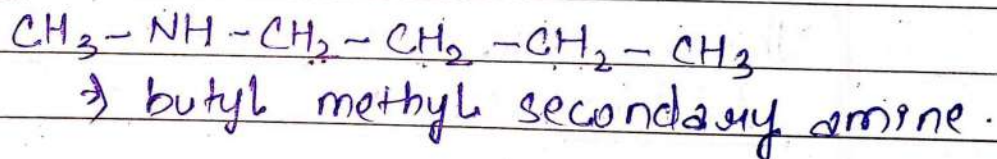 CH₃ - NH - CH₂ - CH₂ - CH₂ - CH₃
⇒ butyl methyl secondary amine.